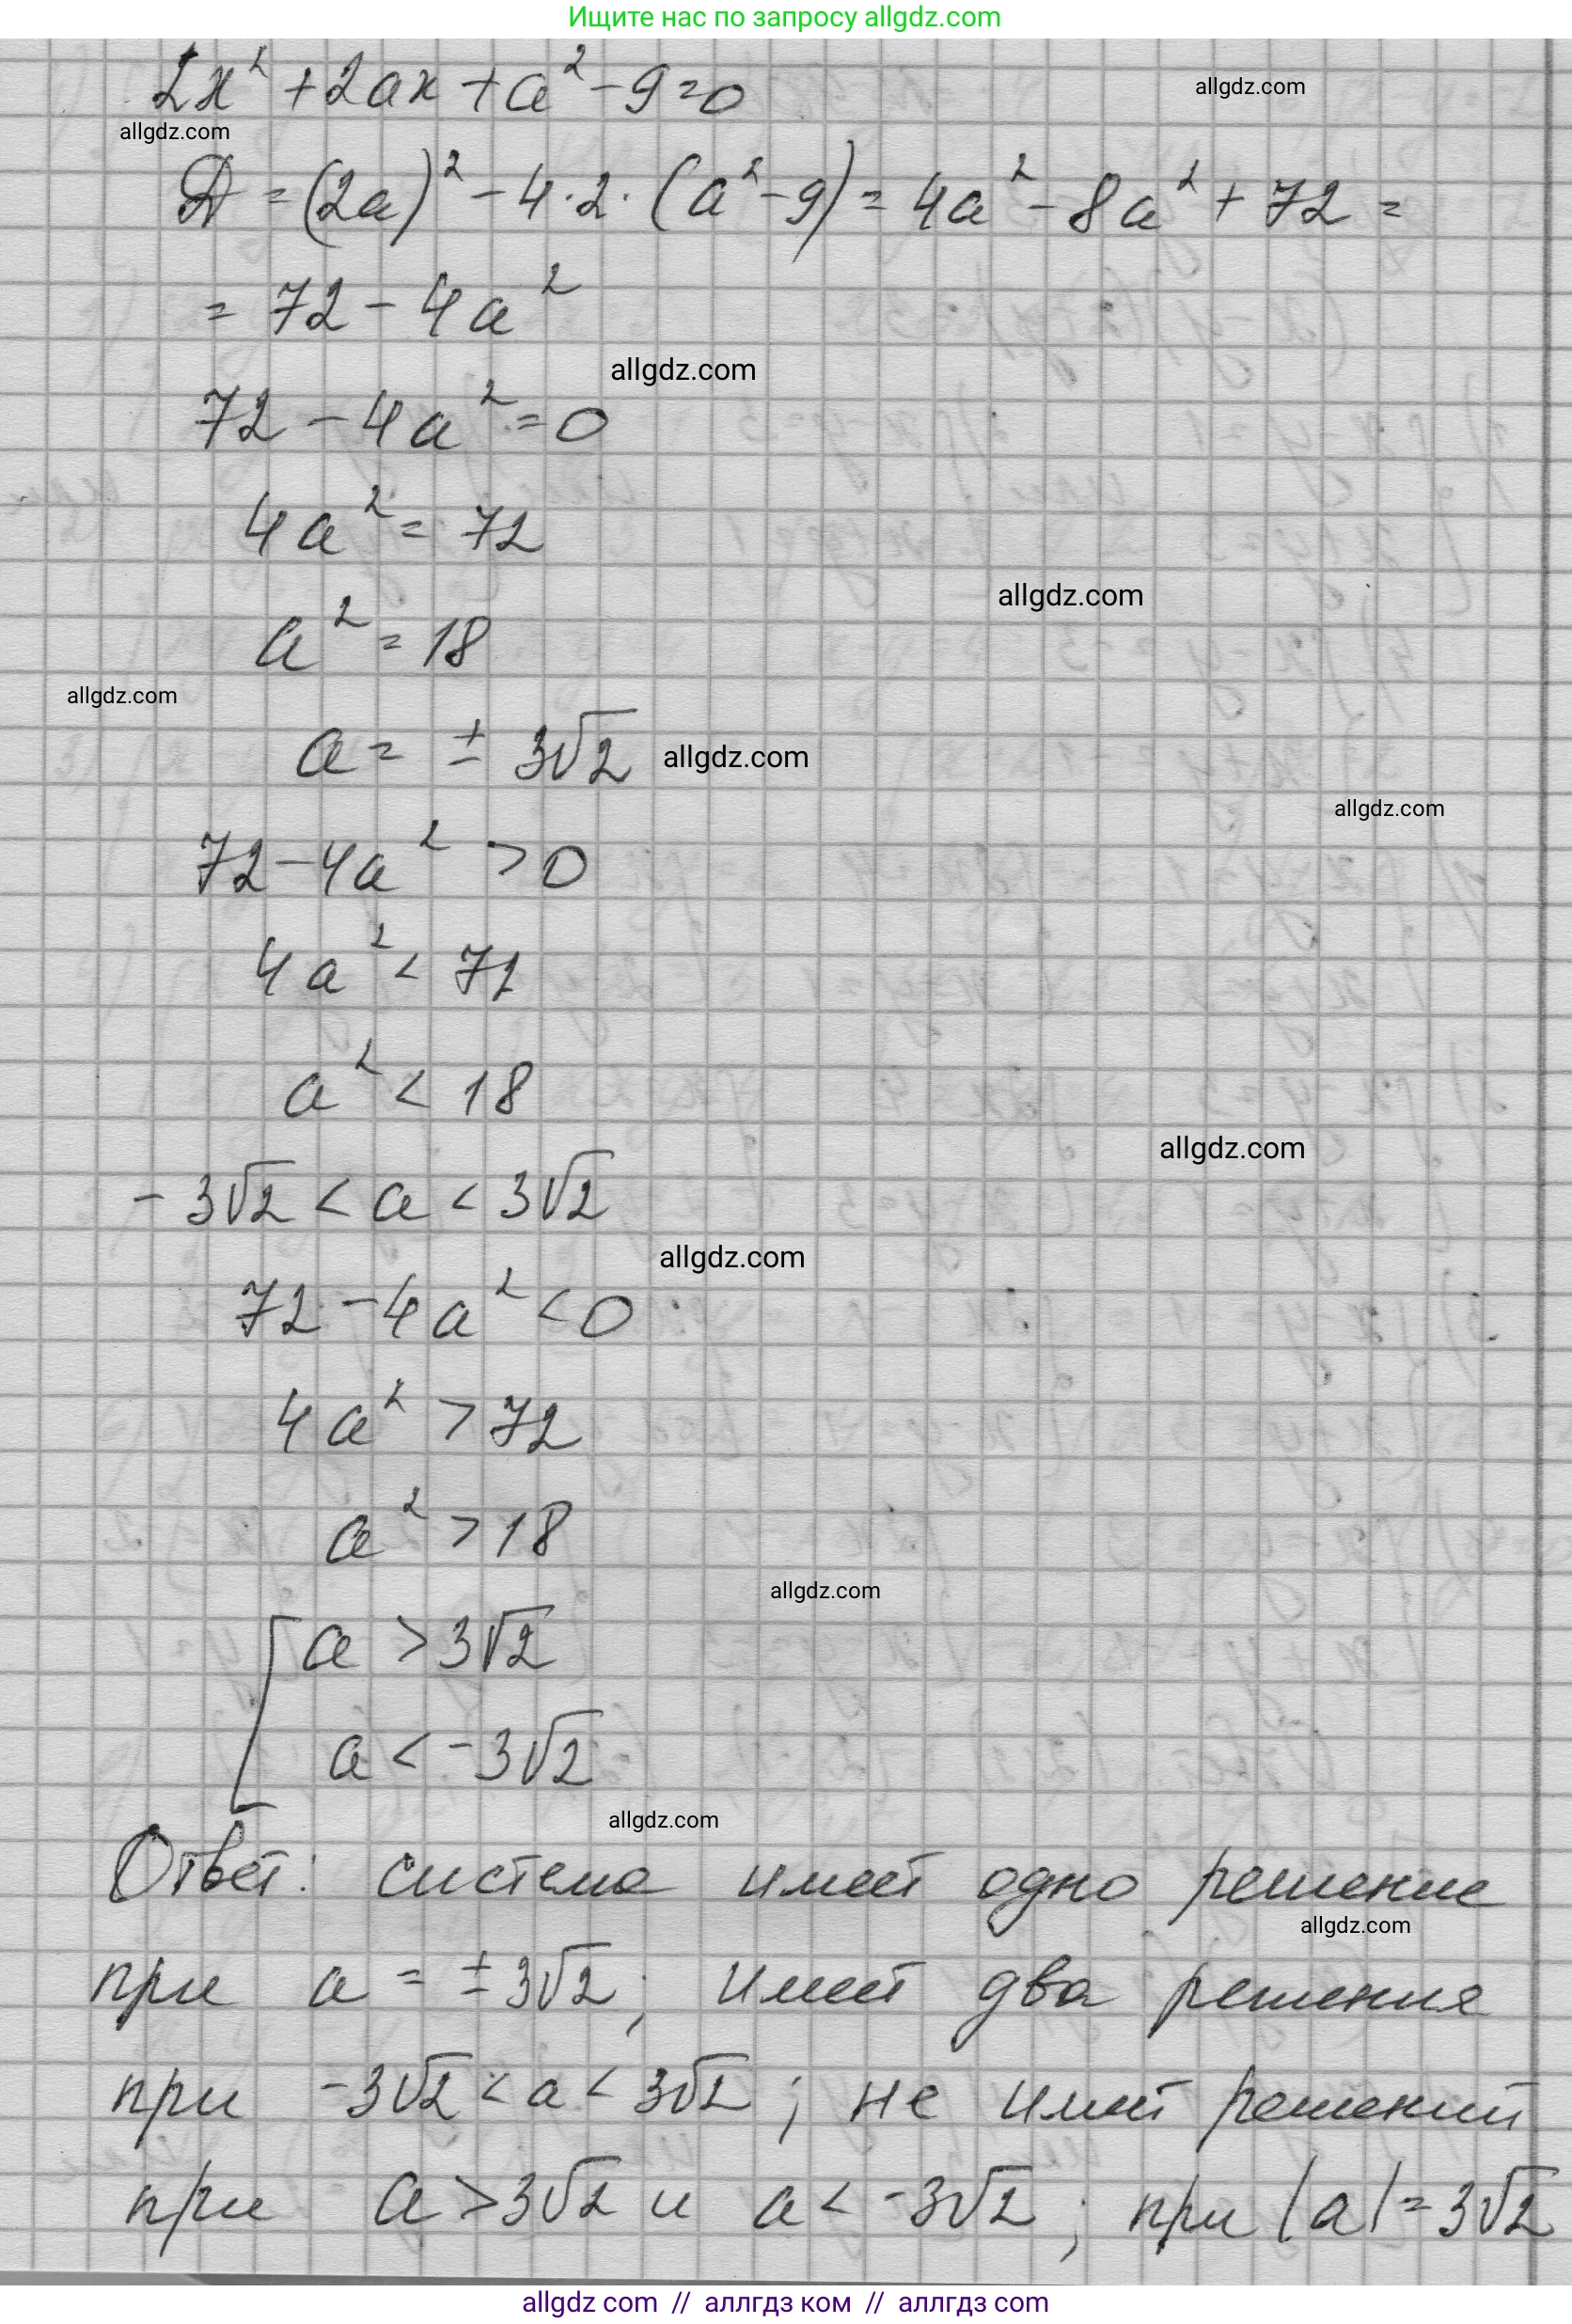 Ищите нас по запросу allgdz.com
2x² + 2ax + a² - 9 = 0
allgdz.com
allgdz.com
D = (2a)² - 4·2·(a² - 9) = 4a² - 8a² + 72 =
= 72 - 4a²
allgdz.com
72 - 4a² = 0
4a² = 72
allgdz.com
a² = 18
allgdz.com
a = ± 3√2 allgdz.com
allgdz.com
72 - 4a² > 0
4a² < 72
a² < 18
allgdz.com
- 3√2 < a < 3√2
allgdz.com
72 - 4a² < 0
4a² > 72
a² > 18
allgdz.com
[ a > 3√2
a < -3√2
allgdz.com
Ответ: система имеет одно решение
allgdz.com
при a = ± 3√2; имеет два решения
при -3√2 < a < 3√2; не имеет решений
при a > 3√2 и a < -3√2; при |a| = 3√2
allgdz com // аллгдз ком // аллгдз com